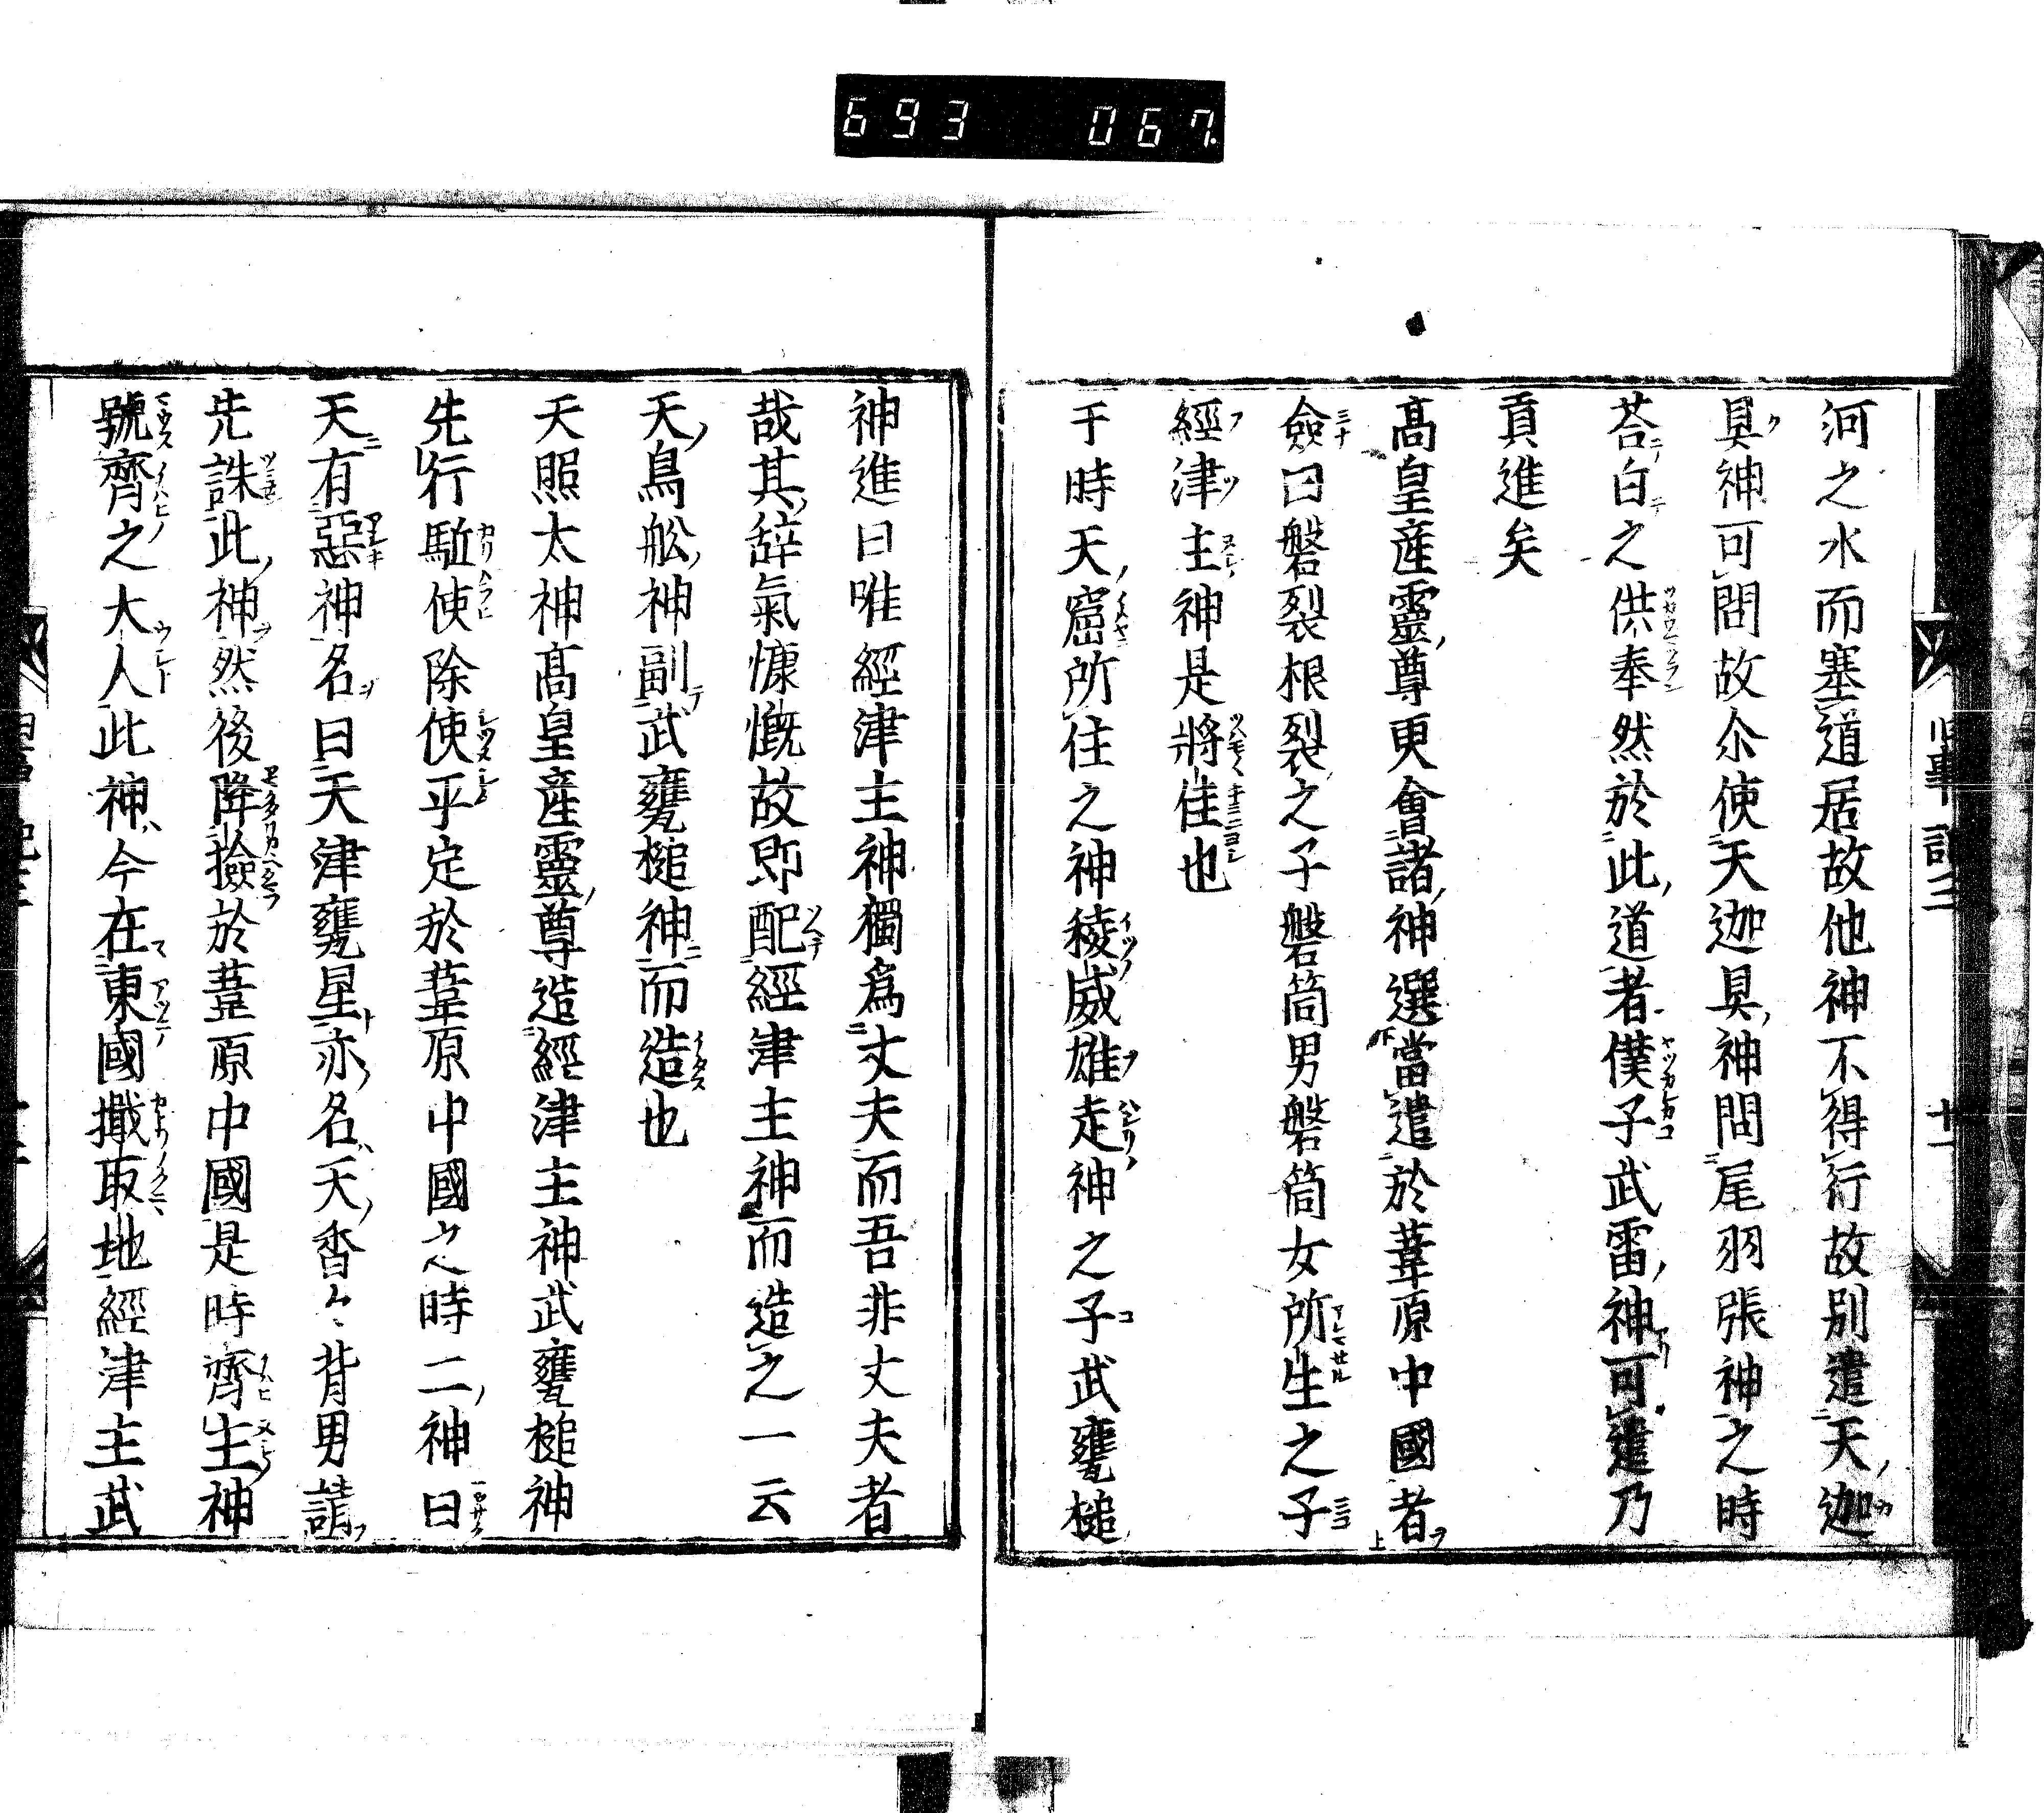 693 067
河之水而塞道居故他神不得行故別遣天迦
具神可問故尒使天迦具神問尾羽張神之時
荅白之供奉然於此道者僕子武雷神可遣乃
貢進矣
高皇産靈尊更會諸神選當遣於葦原中國者
僉曰磐裂根裂之子磐筒男磐筒女所生之子
經津主神是將佳也
于時天窟所住之神稜威雄走神之子武甕槌
神進曰唯經津主神獨爲丈夫而吾非丈夫者
哉其辞氣慷慨故即配經津主神而造之一云
天鳥舩神副武甕槌神而造也
天照太神高皇産靈尊造經津主神武甕槌神
先行駈使除使平定於葦原中國之時二神曰
天有惡神名曰天津甕星亦名天香々背男請
先誅此神然後降撿於葦原中國是時齊主神
號齊之大人此神今在東國檝取地經津主武